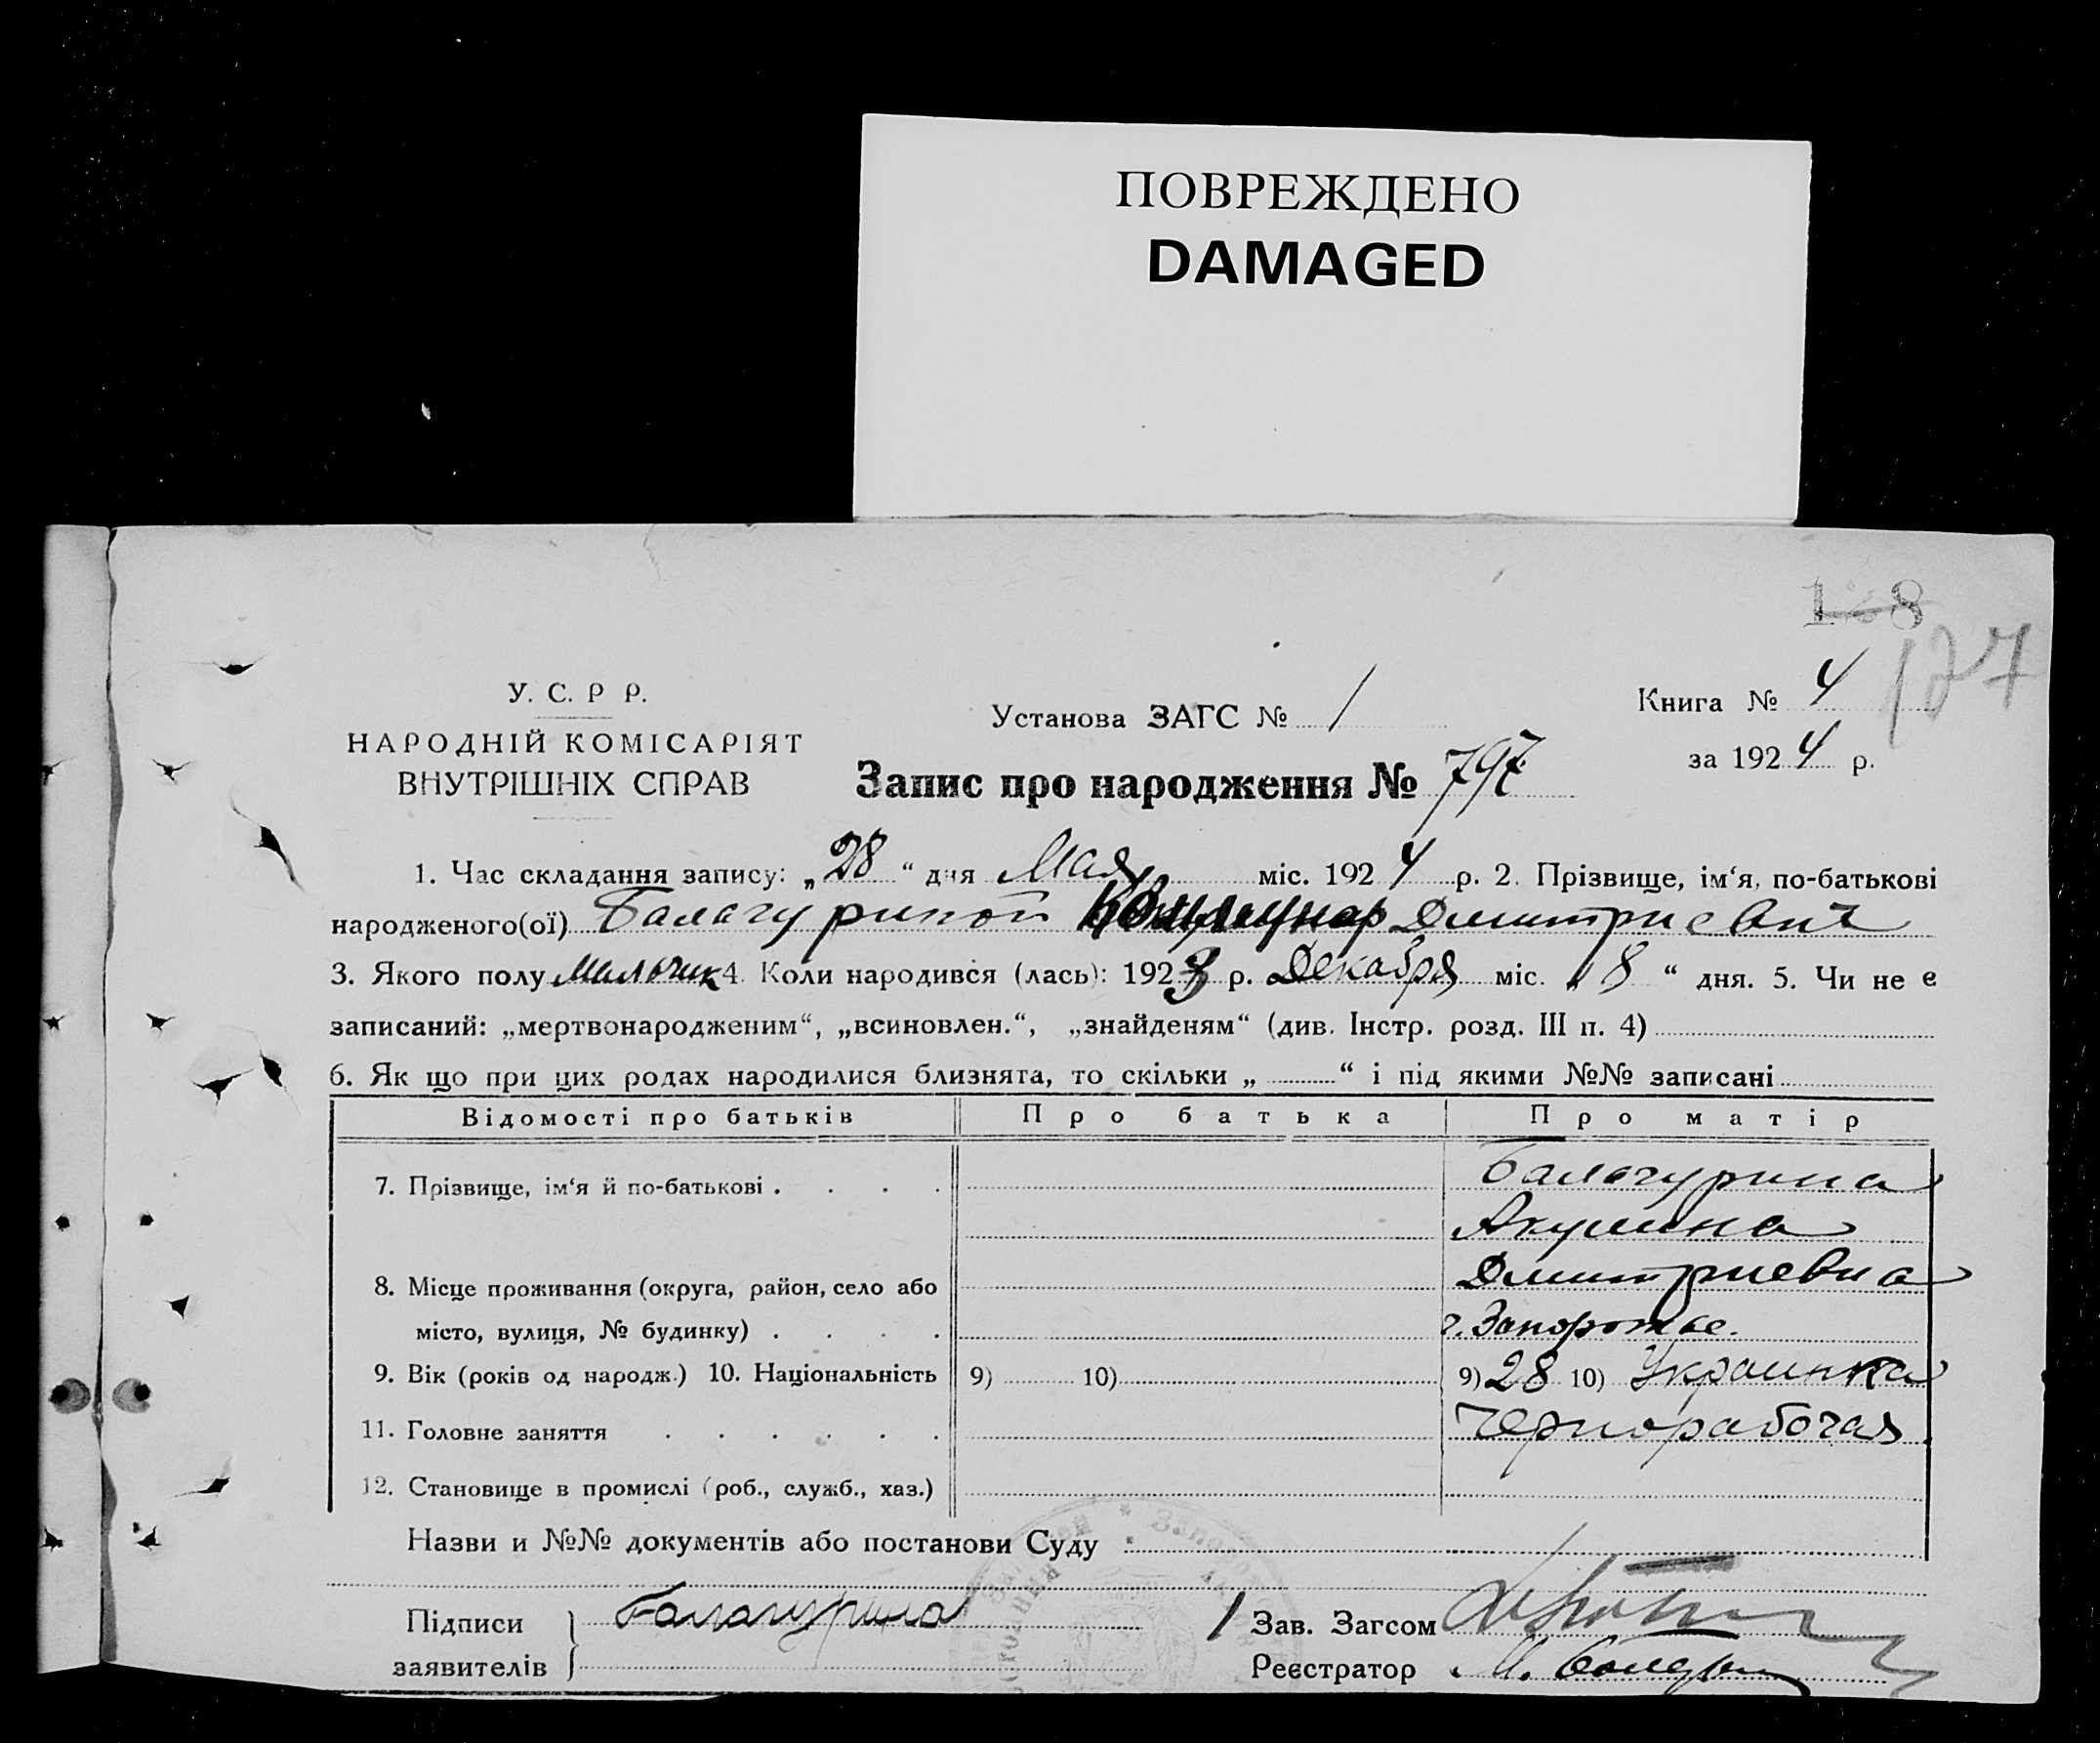 ПОВРЕЖДЕНО
DAMAGED
1 8
127
У. С. Р Р.
НАРОДНІЙ КОМІСАРІЯТ
ВНУТРІШНІХ СПРАВ
Установа ЗАГС № 1
Книга № 4
за 1924 р.
Запис про народження № 797
1. Час складання запису: „28“ дня Мая міс. 1924 р. 2. Прізвище, ім‘я, по-батькові
народженого(ої) Балагуриной Коммунар Дмитриевич
3. Якого полу Мальчик 4. Коли народився (лась): 1923 р. Декабря міс. „8“ дня. 5. Чи не е
записаний: „мертвонародженим“, „всиновлен.“, „знайденям“ (див. Інстр. розд. III п. 4)
6. Як що при цих родах народилися близнята, то скільки „ “ і під якими №№ записані
Відомості про батьків Про батька Про матір
7. Прізвище, ім‘я й по-батькові . . . . Балагурина
Акулина
8. Місце проживання (округа, район, село або Дмитриевна
місто, вулиця, № будинку) . . . . г. Запорожье.
9. Вік (років од народж.) 10. Національність 9) 10) 9) 28 10) Украинка
11. Головне заняття . . . . . . Чернорабочая
12. Становище в промислі (роб., служб., хаз.)
Назви и №№ документів або постанови Суду
Підписи Балагурина Зав. Загсом
заявителів Реєстратор М.